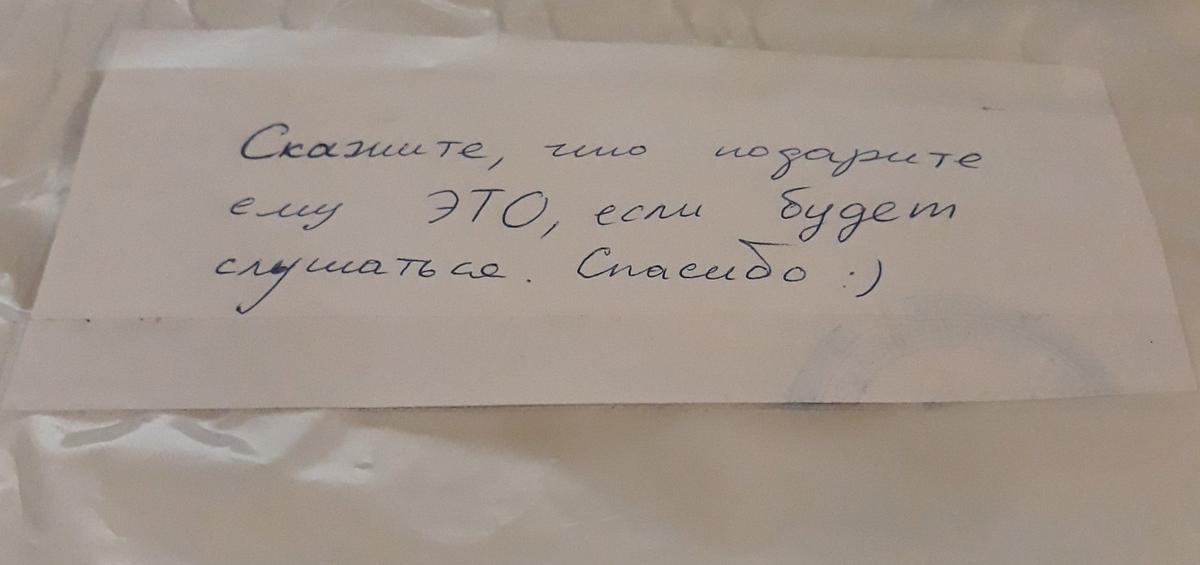 Скажите, что подарите
ему ЭТО, если будет
слушаться. Спасибо :)